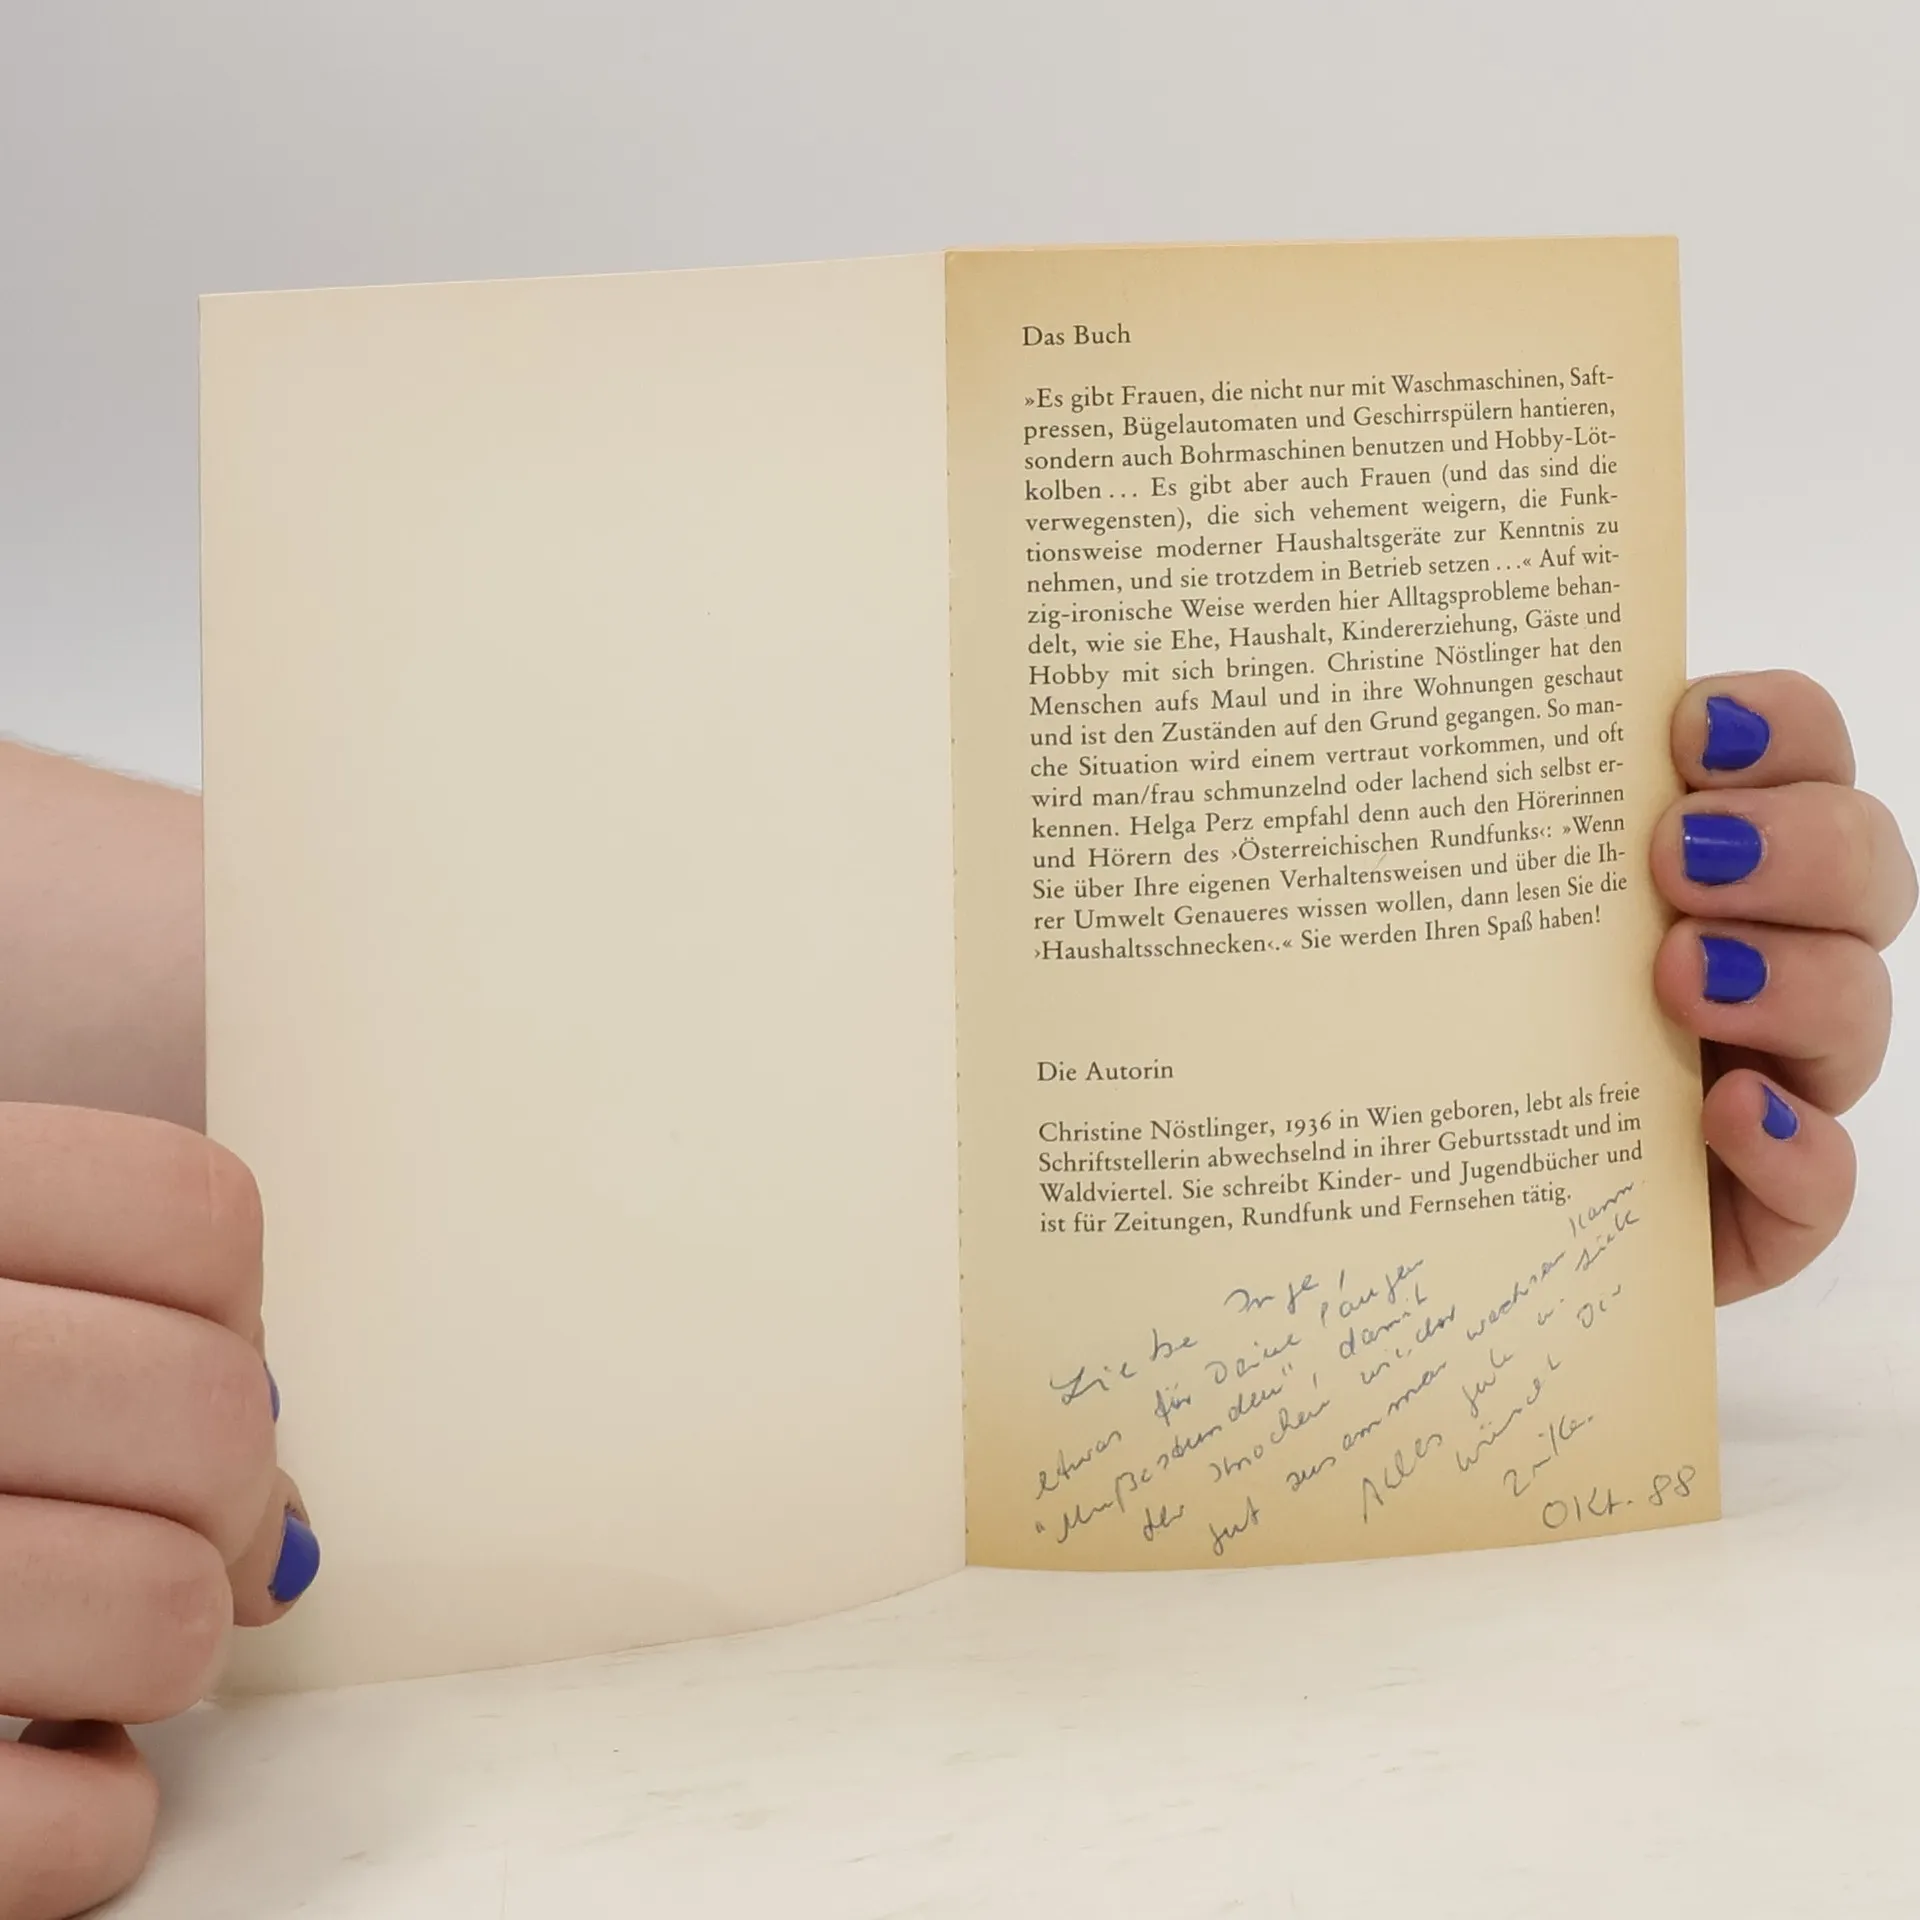 Das Buch
»Es gibt Frauen, die nicht nur mit Waschmaschinen, Saft-
pressen, Bügelautomaten und Geschirrspülern hantieren,
sondern auch Bohrmaschinen benutzen und Hobby-Löt-
kolben ... Es gibt aber auch Frauen (und das sind die
verwegensten), die sich vehement weigern, die Funk-
tionsweise moderner Haushaltsgeräte zur Kenntnis zu
nehmen, und sie trotzdem in Betrieb setzen ...« Auf wit-
zig-ironische Weise werden hier Alltagsprobleme behan-
delt, wie sie Ehe, Haushalt, Kindererziehung, Gäste und
Hobby mit sich bringen. Christine Nöstlinger hat den
Menschen aufs Maul und in ihre Wohnungen geschaut
und ist den Zuständen auf den Grund gegangen. So man-
che Situation wird einem vertraut vorkommen, und oft
wird man/frau schmunzelnd oder lachend sich selbst er-
kennen. Helga Perz empfahl denn auch den Hörerinnen
und Hörern des ›Österreichischen Rundfunks‹: »Wenn
Sie über Ihre eigenen Verhaltensweisen und über die Ih-
rer Umwelt Genaueres wissen wollen, dann lesen Sie die
›Haushaltsschnecken‹.« Sie werden Ihren Spaß haben!
Die Autorin
Christine Nöstlinger, 1936 in Wien geboren, lebt als freie
Schriftstellerin abwechselnd in ihrer Geburtsstadt und im
Waldviertel. Sie schreibt Kinder- und Jugendbücher und
ist für Zeitungen, Rundfunk und Fernsehen tätig.
Liebe Inge,
etwas für Deine langen
"Mußestunden", damit
der Knochen wieder
gut zusammen wachsen kann.
Alles Gute u.
wünscht Dir
OKt. 88